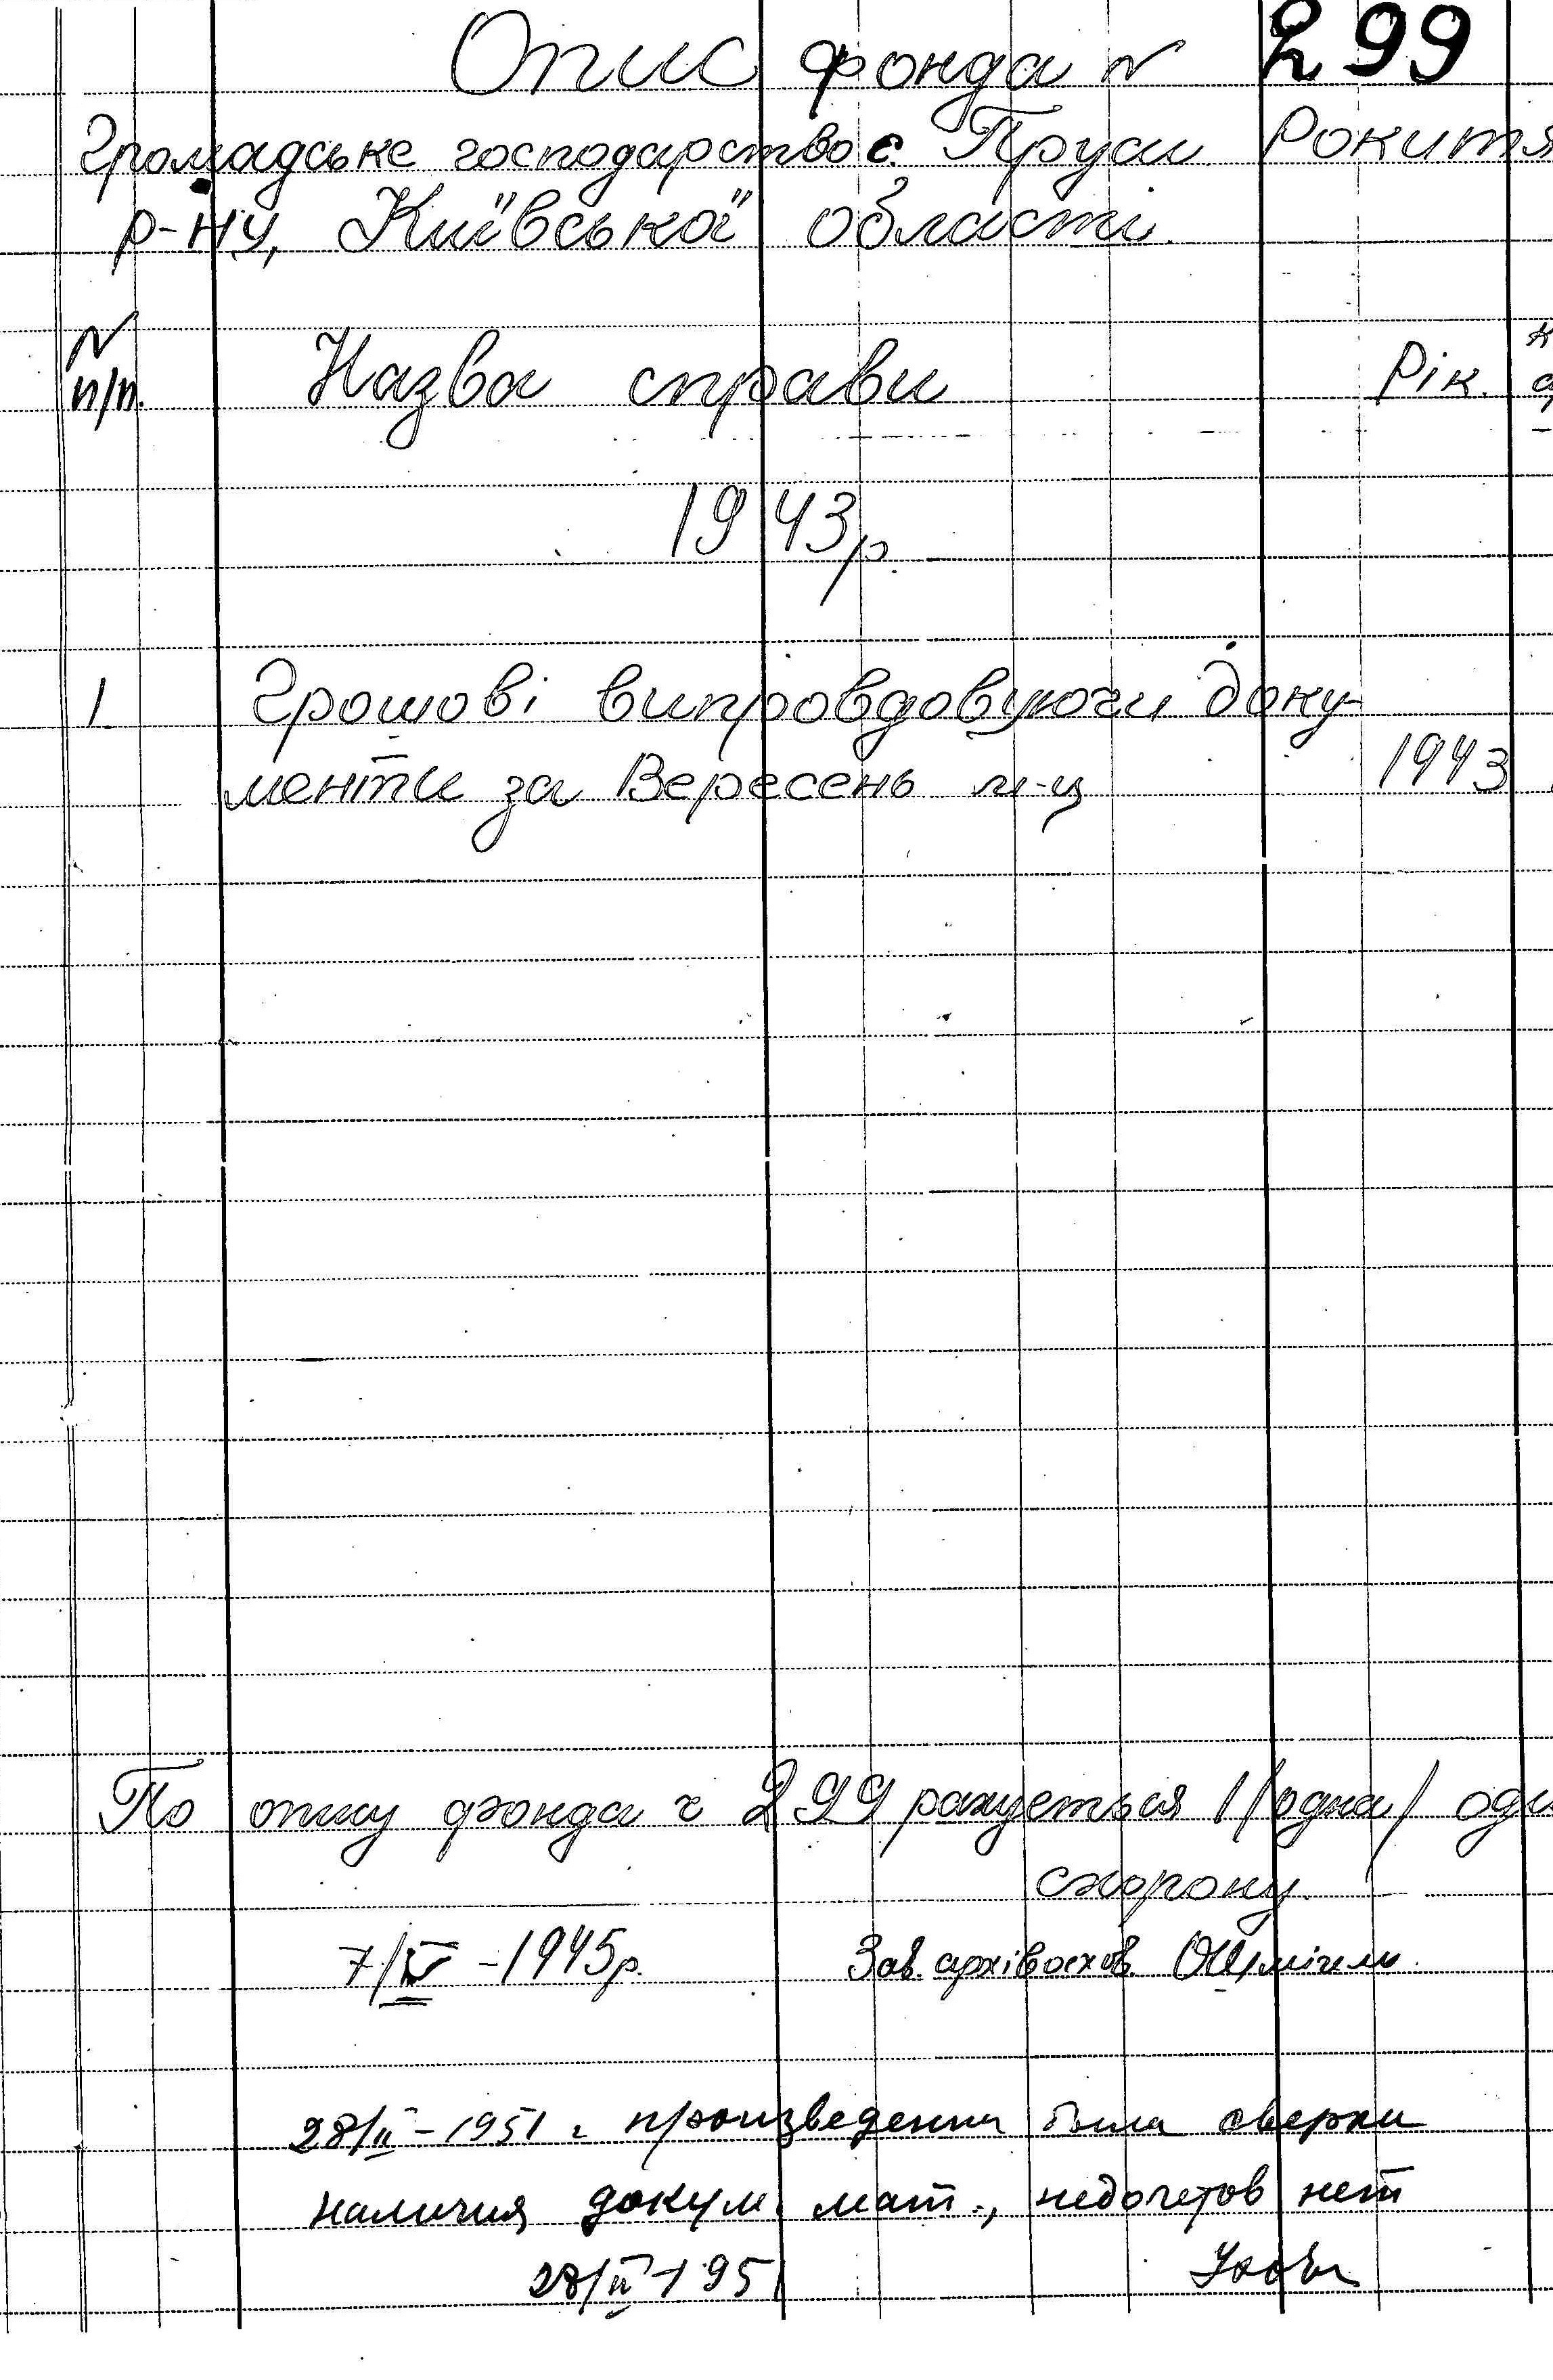 Опис фонда № 299
Громадське господарство с. Пруси Рокитя
р-ну, Київської області.
№
п/п. Назва справи Рік.
1943 р.
1 Грошові випровдовуючи доку-
менти за Вересень м-ць 1943
По опису фонда ч 299 рахується 1 /одна/ оди
схорону.
7/IV - 1945 р. Зав. архівосхов.
28/II - 1951 г произведена была сверка
наличия докум. мат., недочетов нет
28/II-1951